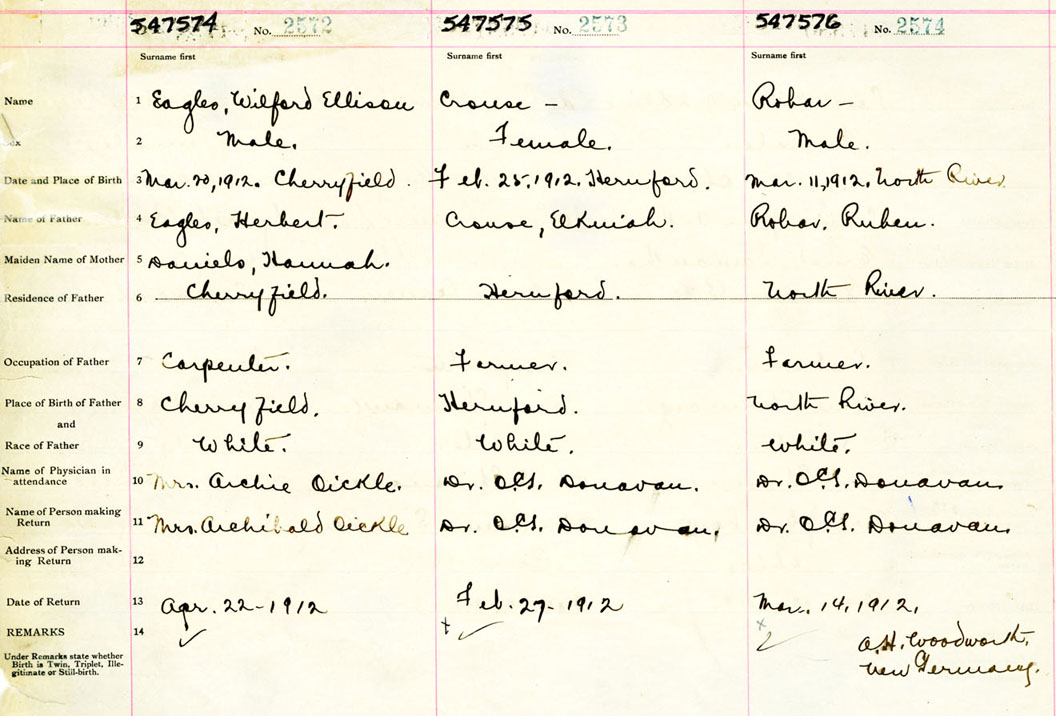 547574 No. 2572 547575 No. 2573 547576 No. 2574
Surname first Surname first Surname first
Name 1 Eagles, Wilford Ellison Crouse – Robar –
2 Male. Female. Male.
Date and Place of Birth 3 Mar. 20, 1912. Cherryfield. Feb. 25, 1912. Hemford. Mar. 11, 1912. North River
Name of Father 4 Eagles, Herbert. Crouse, Elkniah. Robar, Ruben.
Maiden Name of Mother 5 Daniels, Hannah.
Residence of Father 6 Cherryfield. Hemford. North River.
Occupation of Father 7 Carpenter. Farmer. Farmer.
Place of Birth of Father 8 Cherryfield. Hemford. North River.
and
Race of Father 9 White. White. White.
Name of Physician in
attendance 10 Mrs. Archie Oickle. Dr. Donavan. Dr. Donavan.
Name of Person making
Return 11 Mrs. Archibald Oickle Dr. Donavan. Dr. Donavan.
Address of Person mak-
ing Return 12
Date of Return 13 Apr. 22-1912 Feb. 27-1912 Mar. 14, 1912.
REMARKS 14
A.H. Woodworth,
New Germany.
Under Remarks state whether
Birth is Twin, Triplet, Ille-
gitimate or Still-birth.